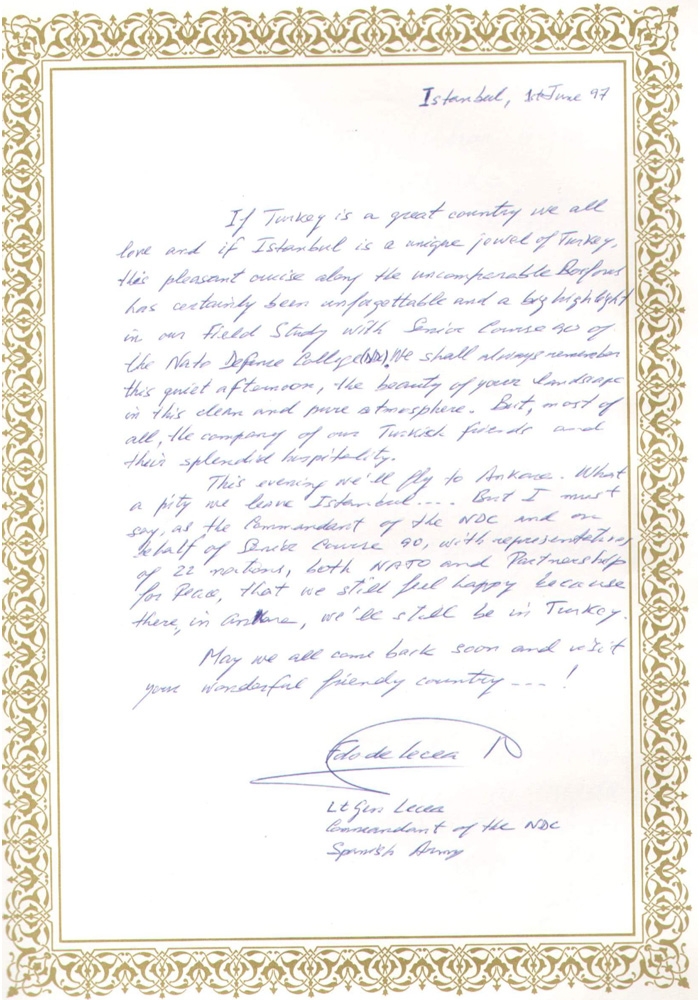 Istanbul, 1st June 97
If Turkey is a great country we all
love and if Istanbul is a unique jewel of Turkey,
this pleasant cruise along the uncomparable Bosforus
has certainly been unforgettable and a big highlight
in our Field Study with Senior Course 90 of
the Nato Defence College (NDC). We shall always remember
this quiet afternoon, the beauty of your landscape
in this clean and pure atmosphere. But, most of
all, the company of our Turkish friends and
their splendid hospitality.
This evening we'll fly to Ankara. What
a pity we leave Istanbul.... But I must
say, as the Commandant of the NDC and on
behalf of Senior Course 90, with representatives
of 22 nations, both NATO and Partnership
for Peace, that we still feel happy because
there, in Ankara, we'll still be in Turkey.
May we all come back soon and visit
your wonderful friendly country --- !
de Lecea
Lt Gen Lecea
Commandant of the NDC
Spanish Army